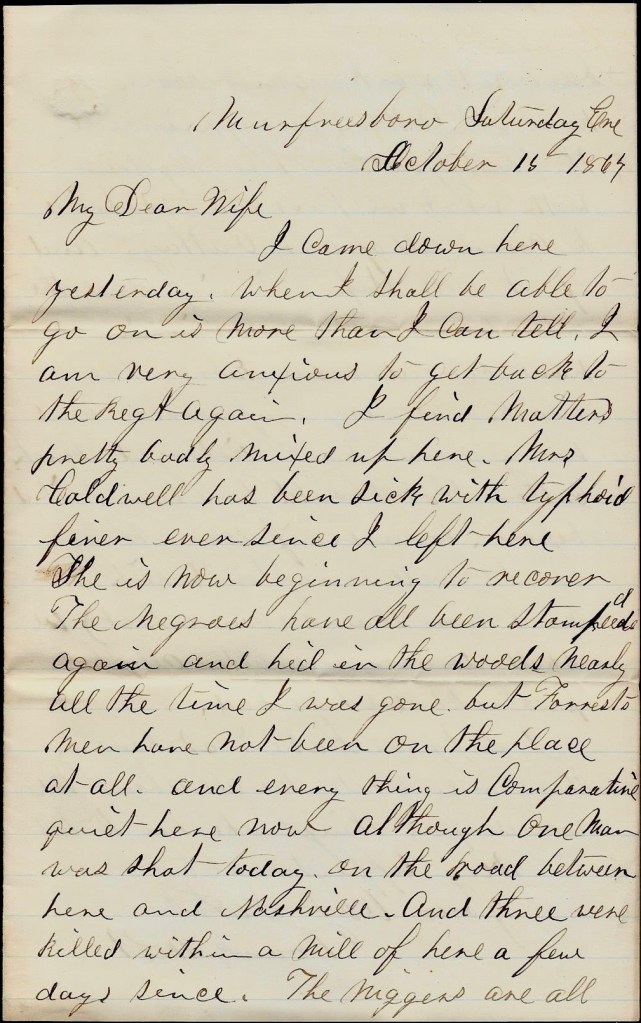 Murfreesboro Saturday Eve
October 15 1864
My Dear Wife
I came down here
yesterday. when I shall be able to
go on is more than I can tell. I
am very anxious to get back to
the Regt again. I find Matters
pretty badly mixed up here. Mrs
Caldwell has been sick with typhoid
fever ever since I left here
She is now beginning to recover
The Negroes have all been stampeeded
again and hid in the woods nearly
all the time I was gone. but Forrests
men have not been on the place
at all. and every thing is Comparative
quiet here now although one Man
was shot today. on the road between
here and Nashville. And three were
killed within a mill of here a few
days since. The niggers are all